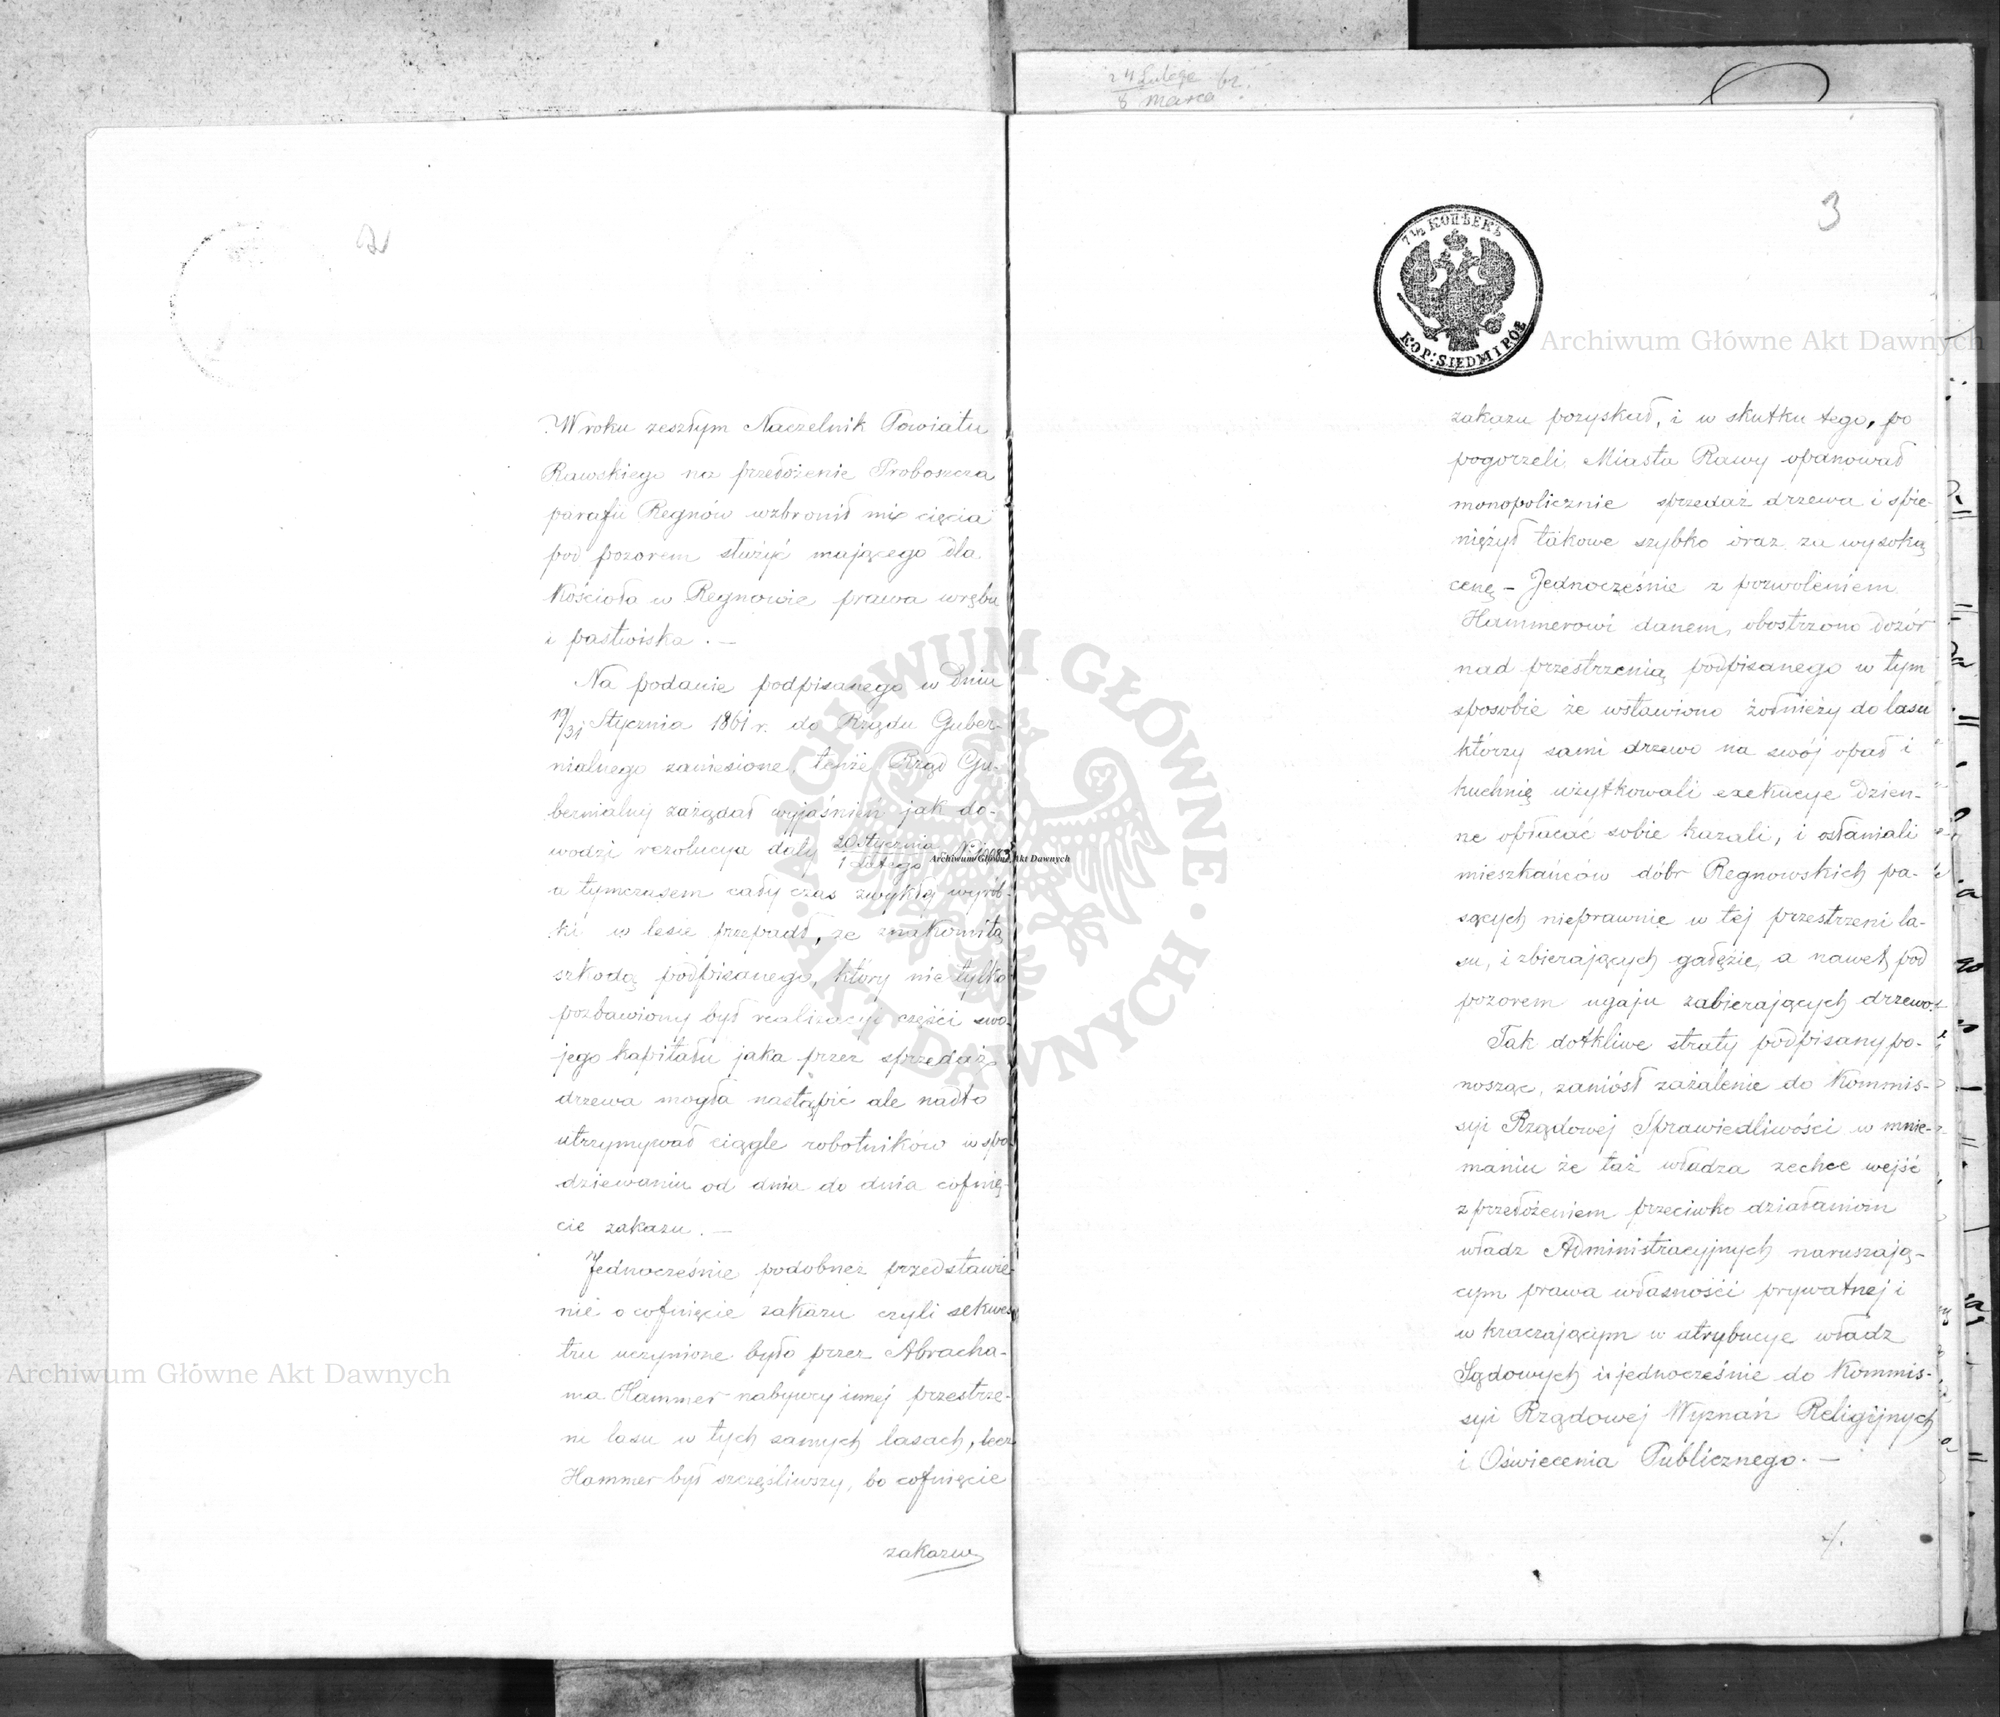 2
W roku zeszłym Naczelnik Powiatu
Rawskiego na przełożenie Proboszcza
parafii Regnów wzbronił mi cięcia
pod pozorem służyć mającego dla
Kościoła w Regnowie prawa wrębu
i pastwiska. —
Na podanie podpisanego w Dniu
19/31 Stycznia 1861 r. do Rządu Guber-
nialnego zaniesione, tenże Rząd Gu-
bernialny zażądał wyjaśnień jak do-
wodzi rezolucya daty 20 Stycznia / 1 Lutego
a tymczasem cały czas zwykłej wyrób-
ki w lesie przepadł, ze znakomitą
szkodą podpisanego, który nie tylko
pozbawiony był realizacyi części swo-
jego kapitału jaka przez sprzedaż
drzewa mogła nastąpić ale nadto
utrzymywał ciągle robotników w spo-
dziewaniu od dnia do dnia cofnię-
cie zakazu. —
Jednocześnie podobneż przedstawie-
nie o cofnięcie zakazu czyli sekwes-
tru uczynione było przez Abracha-
ma Hammer nabywcy innej przestrze-
ni lasu w tych samych lasach, lecz
Hammer był szczęśliwszy, bo cofnięcie
zakazu
24 Lutego / 8 Marca 62.
3
7 1/2 КОПѢЕКЪ
KOP: SIEDM I PÓŁ
zakazu pozyskał, i w skutku tego, po
pogorzeli Miasta Rawy opanował
monopolicznie sprzedaż drzewa i spie-
niężył takowe szybko oraz za wysoką
cenę – Jednocześnie z pozwoleniem
Hammerowi danem, obostrzono dozór
nad przestrzenią podpisanego w tym
sposobie że wstawiono żołnieży do lasu
którzy sami drzewo na swój opał i
kuchnię użytkowali exekucye dzien-
ne opłacać sobie kazali, i osłaniali
mieszkańców dóbr Regnowskich pa-
sących nieprawnie w tej przestrzeni la-
su, i zbierających gałęzie, a nawet pod
pozorem ugaju zabierających drzewo.
Tak dotkliwe straty podpisany po-
nosząc, zaniósł zażalenie do Kommis-
syi Rządowej Sprawiedliwości w mnie-
maniu że taż władza zechce wejść
z przełożeniem przeciwko działaniom
władz Administracyjnych naruszają-
cym prawa własności prywatnej i
w kraczającym w atrybucye władz
Sądowych i jednocześnie do Kommis-
syi Rządowej Wyznań Religijnych
i Oświecenia Publicznego. —
Archiwum Główne Akt Dawnych
Archiwum Główne Akt Dawnych
Archiwum Główne Akt Dawnych
ARCHIWUM GŁÓWNE · AKT DAWNYCH ·